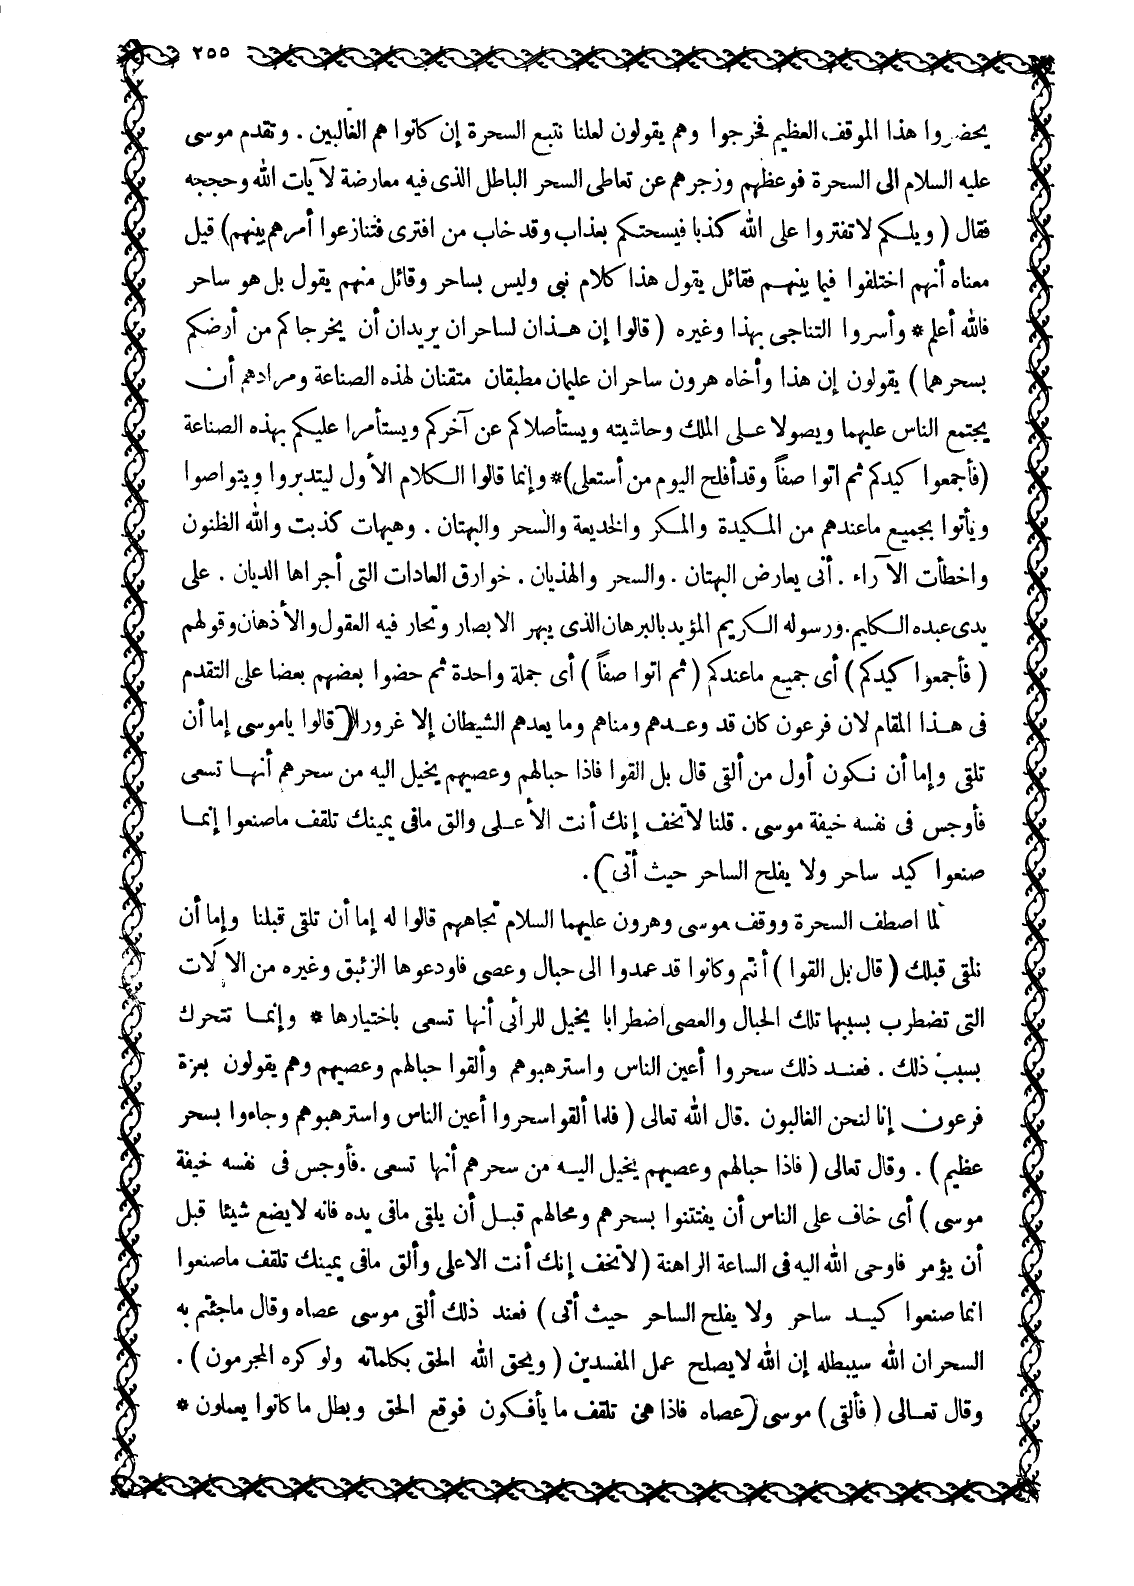 ٢٥٥
يحضروا هذا الموقف العظيم فخرجوا وهم يقولون لعلنا نتبع السحرة إن كانوا هم الغالبين . وتقدم موسى
عليه السلام الى السحرة فوعظهم وزجرهم عن تعاطى السحر الباطل الذى فيه معارضة لآيات الله وحججه
فقال ( ويلكم لا تفتروا على الله كذبا فيسحتكم بعذاب وقد خاب من افترى فتنازعوا أمرهم بينهم) قيل
معناه أنهم اختلفوا فيما بينهم فقائل يقول هذا كلام نبى وليس بساحر وقائل منهم يقول بل هو ساحر
فالله أعلم * وأسروا التناجى بهذا وغيره ( قالوا إن هذان لساحران يريدان أن يخرجاكم من أرضكم
بسحرهما ) يقولون إن هذا وأخاه هرون ساحران عليمان مطبقان متقنان لهذه الصناعة ومرادهم أن
يجتمع الناس عليهما ويصولا على الملك وحاشيته ويستأصلاكم عن آخركم ويستأمرا عليكم بهذه الصناعة
(فأجمعوا كيدكم ثم اتوا صفاً وقد أفلح اليوم من أستعلى)* وإنما قالوا الكلام الأول ليتدبروا ويتواصوا
ويأتوا بجميع ماعندهم من المكيدة والمكر والخديعة والسحر والبهتان . وهيهات كذبت والله الظنون
واخطأت الآراء . أنى يعارض البهتان . والسحر والهذيان . خوارق العادات التى أجراها الديان . على
يدى عبده الكليم . ورسوله الكريم المؤيد بالبرهان الذى يبهر الابصار وتحار فيه العقول والأذهان وقولهم
( فأجمعوا كيدكم ) أى جميع ماعندكم ( ثم اتوا صفاً ) أى جملة واحدة ثم حضوا بعضهم بعضا على التقدم
فى هذا المقام لان فرعون كان قد وعدهم ومناهم وما يعدهم الشيطان إلا غرورا ( قالوا ياموسى إما أن
تلقى وإما أن نكون أول من ألقى قال بل القوا فاذا حبالهم وعصيهم يخيل اليه من سحرهم أنها تسعى
فأوجس فى نفسه خيفة موسى . قلنا لا تخف إنك أنت الأعلى والق مافى يمينك تلقف ماصنعوا إنما
صنعوا كيد ساحر ولا يفلح الساحر حيث أتى ) .
لما اصطف السحرة ووقف موسى وهرون عليهما السلام تجاههم قالوا له إما أن تلقى قبلنا وإما أن
نلقى قبلك ( قال بل القوا ) أنتم وكانوا قد عمدوا الى حبال وعصى فاودعوها الزئبق وغيره من الآلات
التى تضطرب بسببها تلك الحبال والعصى اضطرابا يخيل للرأئى أنها تسعى باختيارها * وإنما تتحرك
بسبب ذلك . فعند ذلك سحروا أعين الناس واسترهبوهم وألقوا حبالهم وعصيهم وهم يقولون بعزة
فرعون إنا لنحن الغالبون . قال الله تعالى ( فلما ألقوا سحروا أعين الناس واسترهبوهم وجاءوا بسحر
عظيم ) . وقال تعالى ( فاذا حبالهم وعصيهم يخيل اليه من سحرهم أنها تسعى . فأوجس فى نفسه خيفة
موسى ) أى خاف على الناس أن يفتتنوا بسحرهم ومحالهم قبل أن يلقى مافى يده فانه لايضع شيئا قبل
أن يؤمر فاوحى الله اليه فى الساعة الراهنة ( لا تخف إنك أنت الاعلى وألق مافى يمينك تلقف ماصنعوا
انما صنعوا كيد ساحر ولا يفلح الساحر حيث أتى ) فعند ذلك ألقى موسى عصاه وقال ماجئتم به
السحر ان الله سيبطله إن الله لايصلح عمل المفسدين ( ويحق الله الحق بكلماته ولو كره المجرمون ) .
وقال تعالى ( فألقى ) موسى ( عصاه فاذا هى تلقف ما يأفكون فوقع الحق وبطل ما كانوا يعملون *